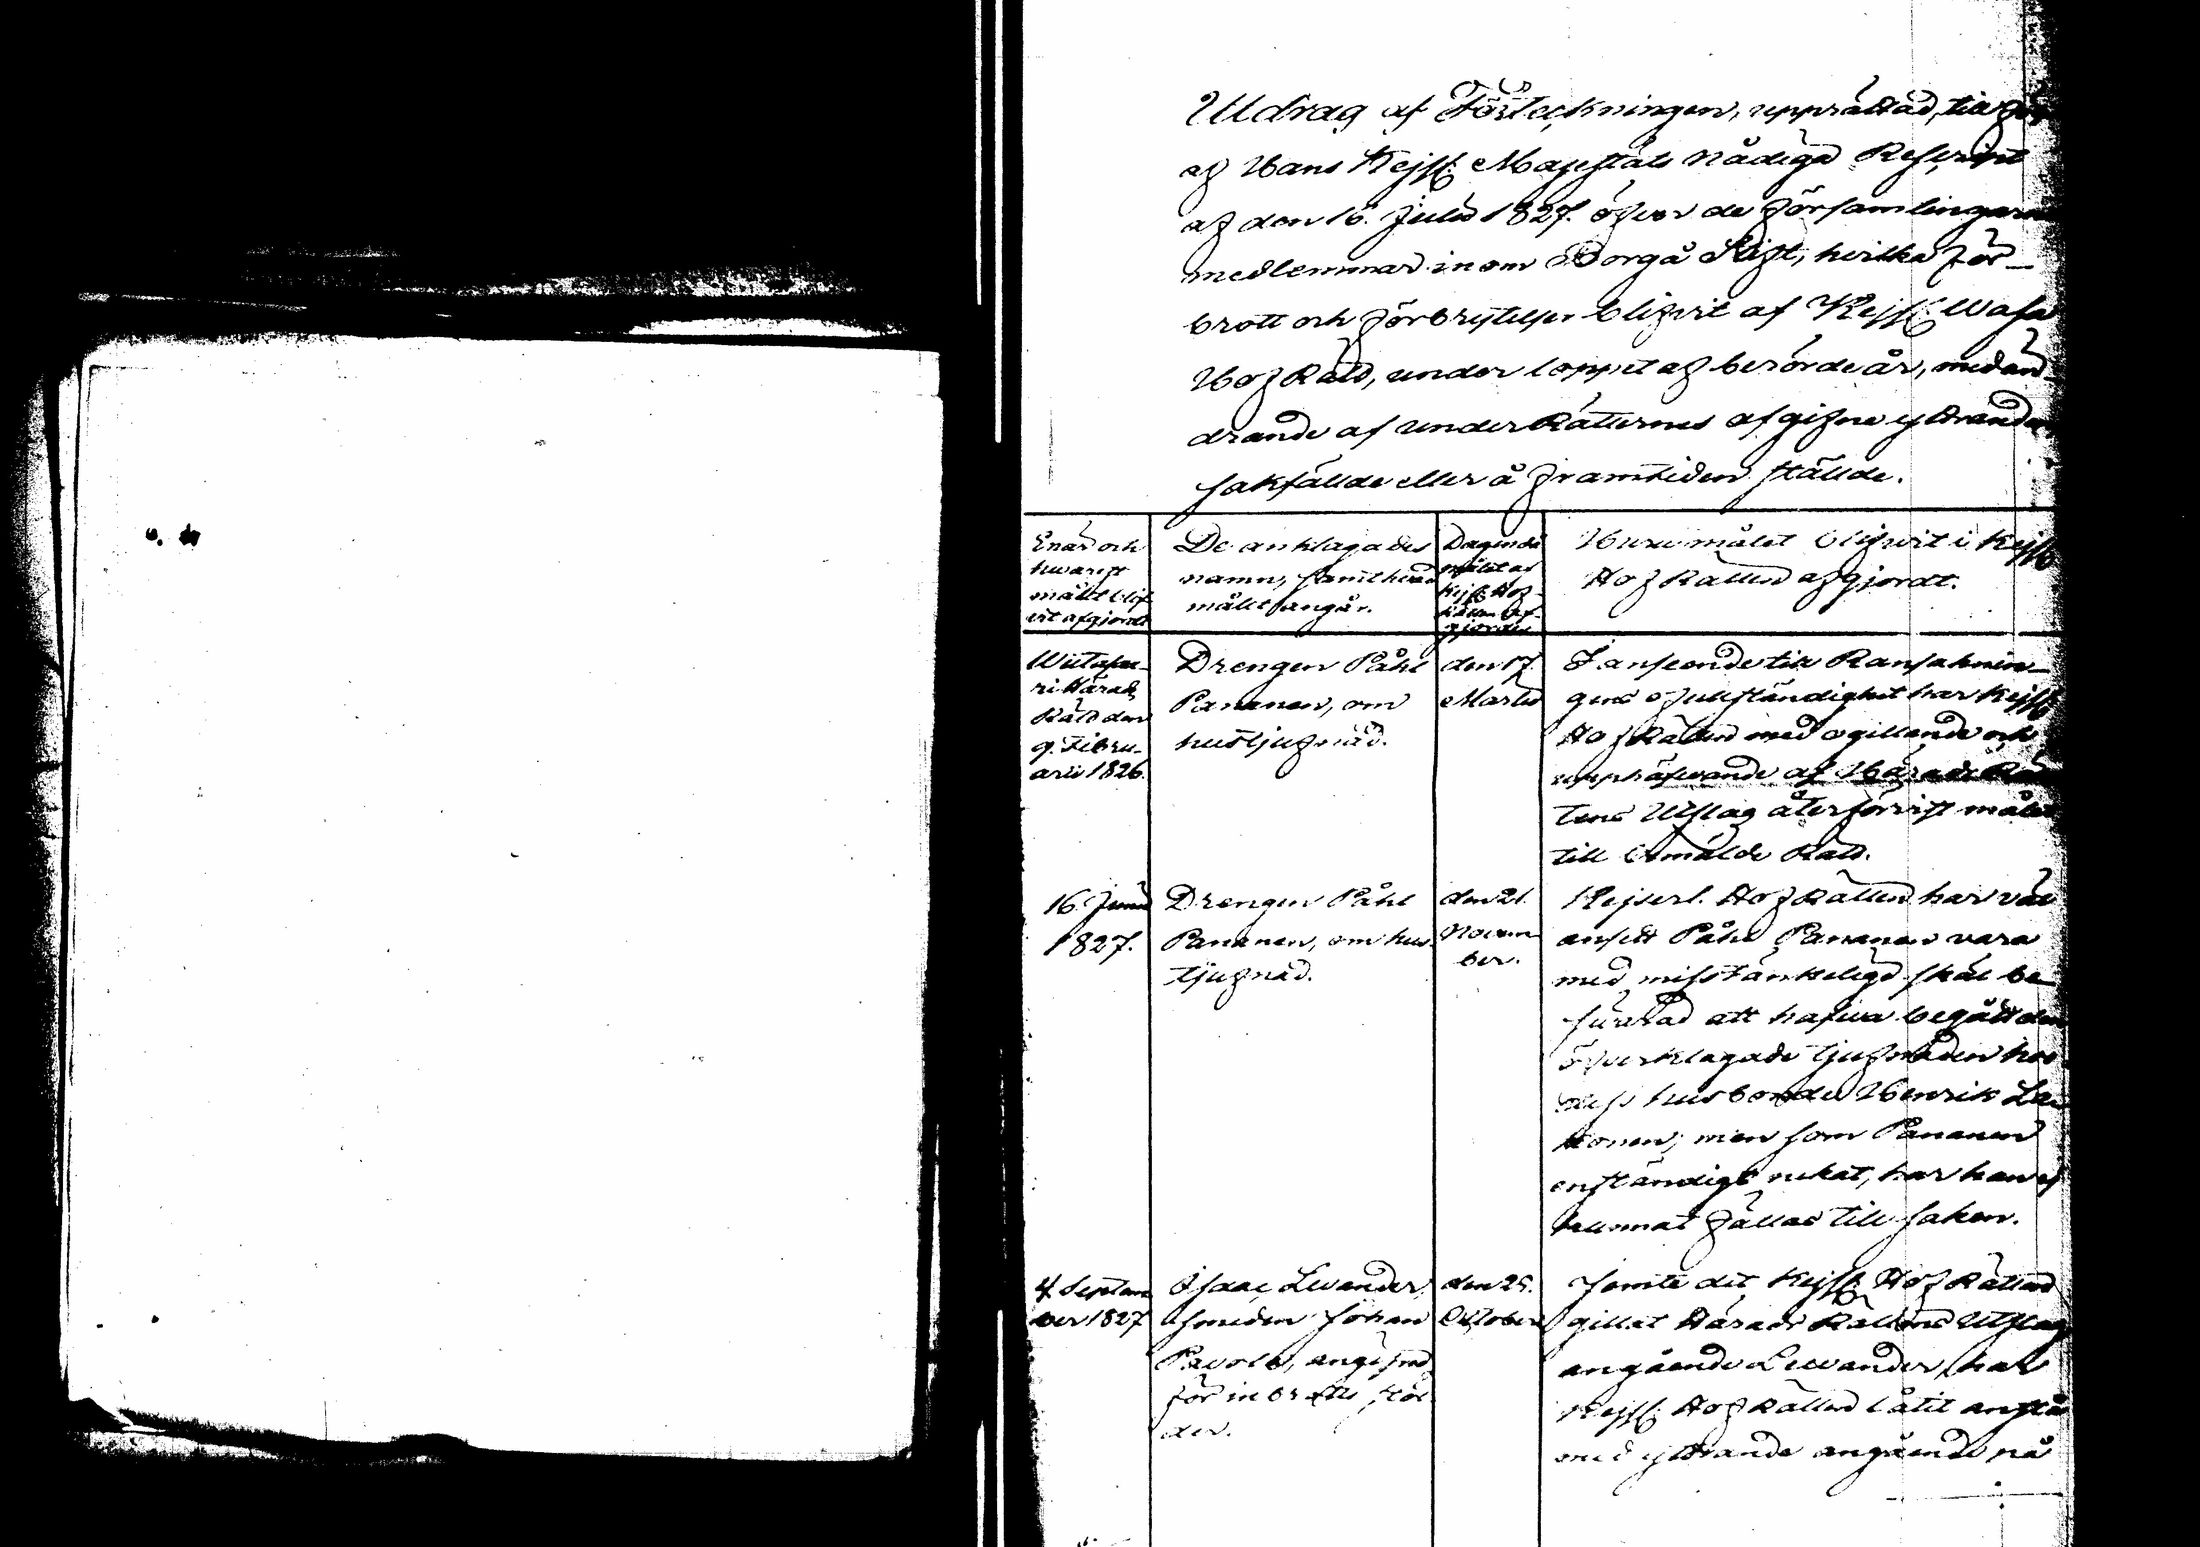 Utdrag af Förteckningen, upprättad, till följe
af Hans Kejsl. Majestäts Nådiga Rescript
af den 16. Julii 1827. öfver de församlingarne
medlemmar inom Borgå Stift, hvilka för
brott och förbrytelser blifvit af Kejsl. Wasa
HofRätt, under loppet af berörde år, med än-
drande af underRätternes afgifne yttranden
sakfällde eller å framtiden ställde.
När och
hwarest
målet blif-
vit afgjordt
De anklagades
namn, samt hvad
målet angår.
Dagen då
målet af
Kejsl. Hof-
Rätten af-
gjordes
Huru målet blifwit i Kejsl.
HofRätten afgjordt.
Wiitasaa-
ri Härads
Rätt den
9. Febru-
arii 1826.
Drengen Påhl
Pananen, om
hustjufnad.
den 17.
Martii
I anseende till Ransaknin-
gens ofullständighet har Kejsl.
HofRätten med ogillande och
upphäfwande af HäradsRät-
tens Utslag återförvist målet
till bemälde Rätt.
16. Junii
1827.
Drengen Påhl
Pananen, om hus-
tjufnad.
den 21.
Novem-
ber.
Kejserl. HofRätten har väl
ansett Påhl Pananen vara
med misstänkeligt skäl be-
svärad att hafwa begått den
öfverklagade tjufnaden hos
dess husbonde Henrik Leh-
tonen; men som Pananen
enständigt nekat, har han ej
kunnat fällas till saken.
4. Septem-
ber 1827
Isaac Lewander,
smeden Johan
Pavola, angifne
för inbrotts stöl-
der.
den 25.
October
Jemte det Kejsl. HofRätten
gillat HäradsRättens Utslag
angående Lewander, har
Kejsl. HofRätten låtit anstå
med yttrande angående nå